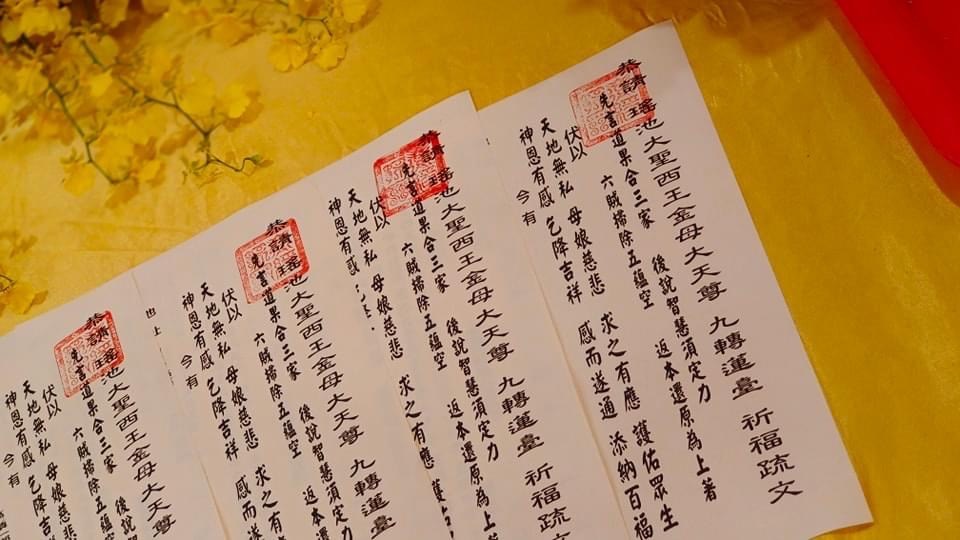 恭請 瑤池大聖西王金母大天尊 九轉蓮臺 祈福疏文
先言道果合三家 後說智慧須定力
六賊掃除五蘊空 返本還原為上著
伏以
天地無私 母娘慈悲 求之有應 護佑眾生
神恩有感 乞降吉祥 感而遂通 添納百福
今有
恭請 瑤池大聖西王金母大天尊 九轉蓮臺 祈福疏文
先言道果合三家 後說智慧須定力
六賊掃除五蘊空 返本還原為上
伏以
天地無私 母娘慈悲 求之有應 護
神恩有感
恭請 瑤池大聖西王金母大天尊 九轉蓮臺
先言道果合三家 後說智慧須定力
六賊掃除五蘊空 返本還
伏以
天地無私 母娘慈悲 求之有
神恩有感 乞降吉祥 感而遂
今有
恭請 瑤池大聖西王金母大天尊
先言道果合三家 後說
六賊掃除五蘊空
伏以
天地無私 母娘慈悲
神恩有感 乞降吉
今有